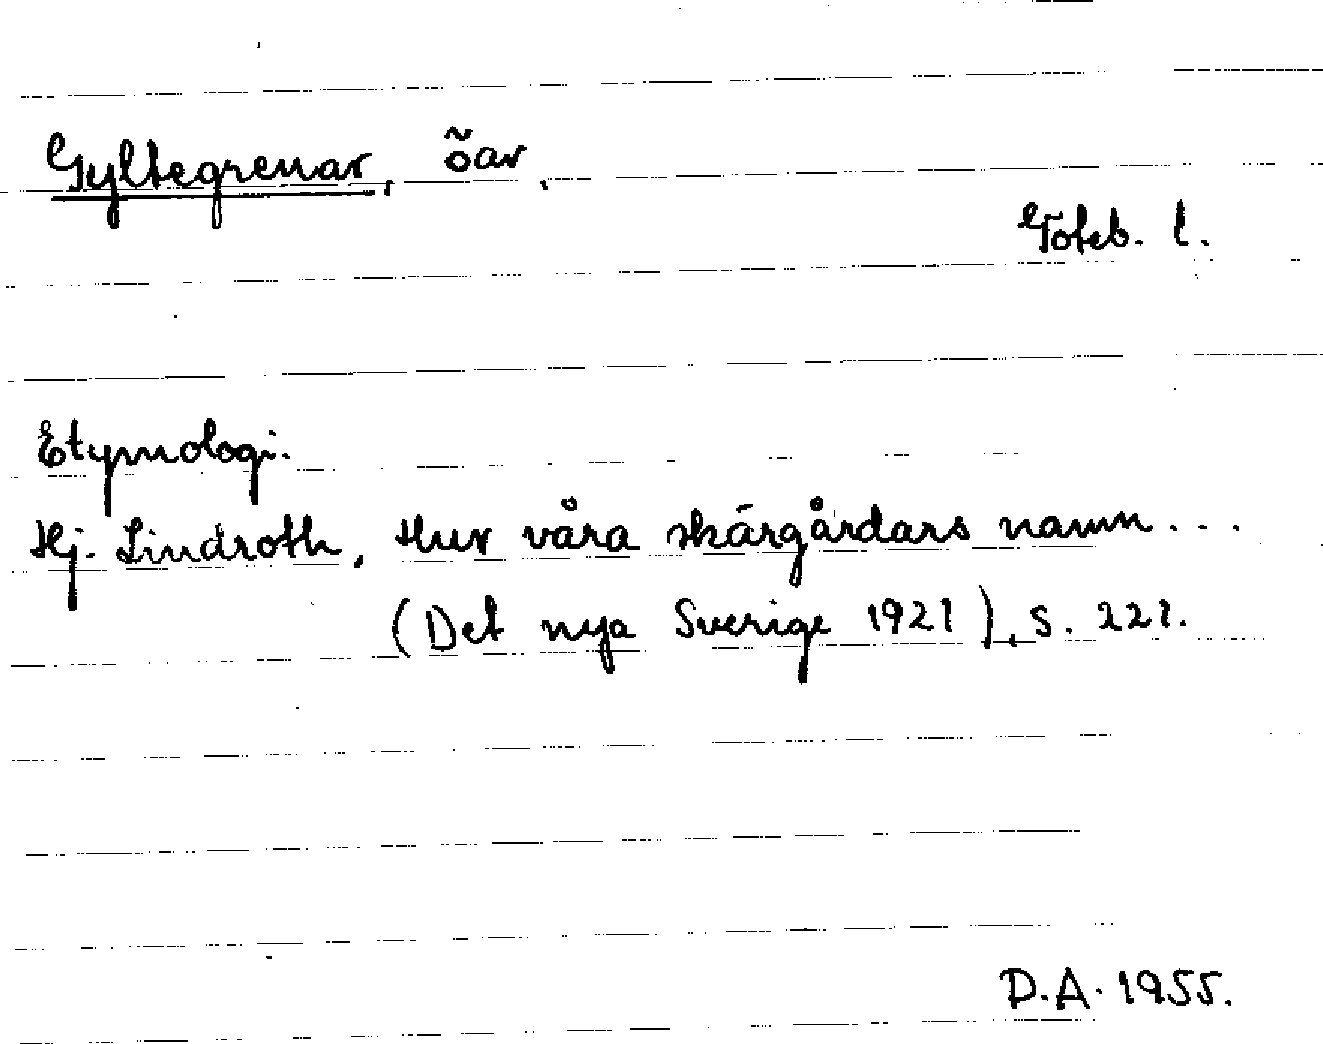 Gyltegrenar, öar,
Göteb. l.
Etymologi.
Hj. Lindroth, Hur våra skärgårdars namn...
(Det nya Sverige 1921), s. 221.
D.A. 1955.